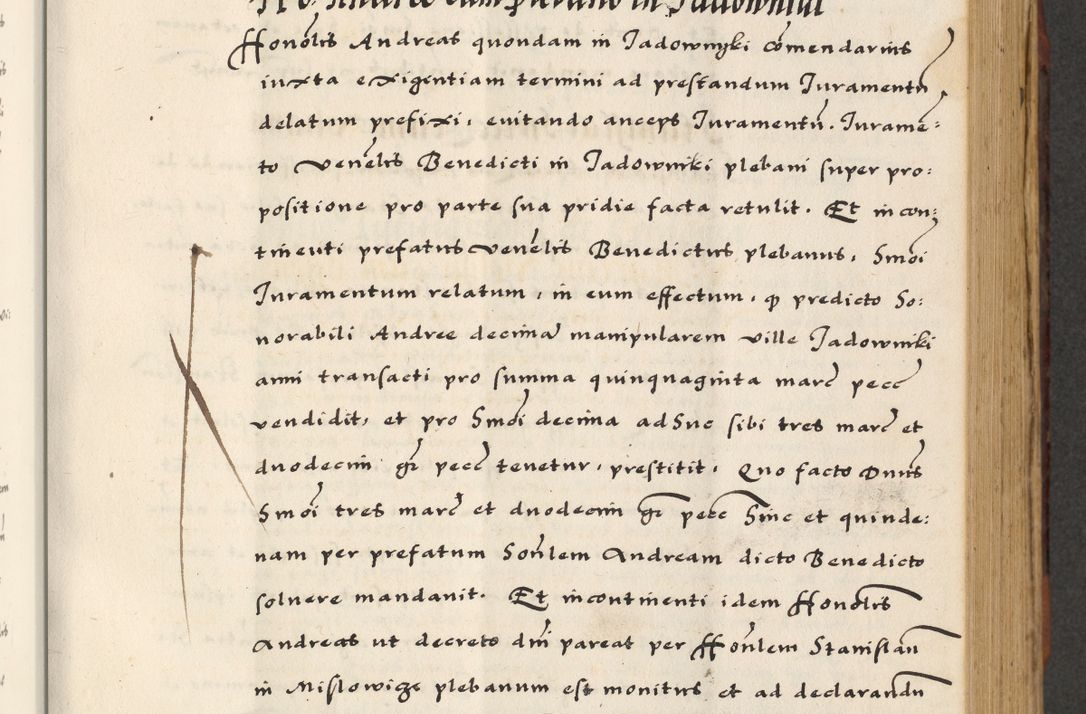 Honorlis Andreas quondam in Jadownyki comendarius
iuxta exigentiam termini ad prestandum Juramentu
delatum prefixi, euitando anceps Juramentu. Jurame:
to venerlis Benedicti in Jadowniki plebani super pro:
positione pro parte sua pridie facta retulit. Et in con:
tinenti prefatus venerlis Benedictus plebanus, hmoi
Juramentum relatum, in eum effectum, q predicto ho:
norabili Andree decimā manipularem ville Jadowniki
anni transacti pro summa quinquaginta marc pecc
vendidit, et pro hmoi decima adhuc sibi tres marc et
duodecim gr pecc tenetur, prestitit. Quo facto Dnus
hmoi tres marc et duodecim gr pecc hinc et quinde:
nam per prefatum honlem Andream dicto Benedicto
soluere mandauit. Et incontinenti idem Honorlis
Andreas ut decreto dni pareat per Honlem Stanislau
in Mislowicze plebanum est monitus et ad declarandu